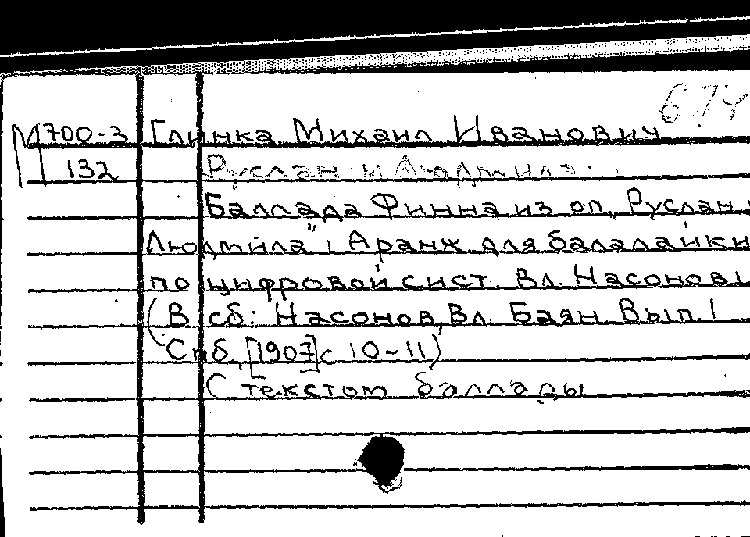 674
М700-3 Глинка Михаил Иванович
132 Руслан и Людмила.
Баллада Финна из оп. „Руслан
Людмила", Аранж. для балалайки
по цифровой сист. Вл. Насонов
(В сб: Насонов, Вл. Баян. Вып. 1
Спб, [1907] с 10-11)
С текстом баллады